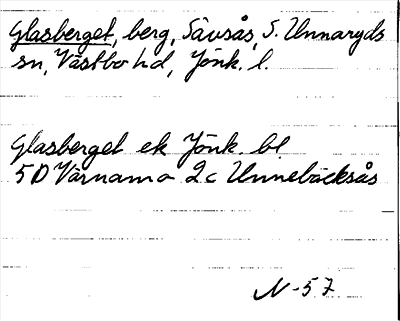 Glasberget, berg, Sävsås, S. Unnaryds
sn, Västbo hd, Jönk. l.
Glasberget ek Jönk. bl
5D Värnamo 2c Unnebäcksås
N-57